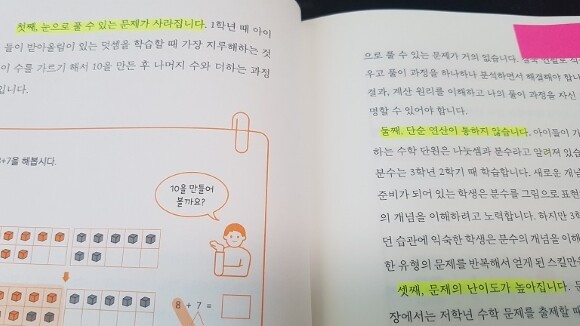 첫째, 눈으로 풀 수 있는 문제가 사라집니다. 1학년 때 아이
들이 받아올림이 있는 덧셈을 학습할 때 가장 지루해하는 것
이 수를 가르기 해서 10을 만든 후 나머지 수와 더하는 과정
입니다.
+7을 해봅시다.
10을 만들어
볼까요?
8 + 7 =
으로 풀 수 있는 문제가 거의 없습니다.
우고 풀이 과정을 하나하나 분석하면서 해결해야 합니
결과, 계산 원리를 이해하고 나의 풀이 과정을 자신
명할 수 있어야 합니다.
둘째, 단순 연산이 통하지 않습니다. 아이들이 가
하는 수학 단원은 나눗셈과 분수라고 알려져 있습
분수는 3학년 2학기 때 학습합니다. 새로운 개념
준비가 되어 있는 학생은 분수를 그림으로 표현
의 개념을 이해하려고 노력합니다. 하지만 3학
던 습관에 익숙한 학생은 분수의 개념을 이해
한 유형의 문제를 반복해서 얻게 된 스킬만
셋째, 문제의 난이도가 높아집니다. 문
장에서는 저학년 수학 문제를 출제할 때